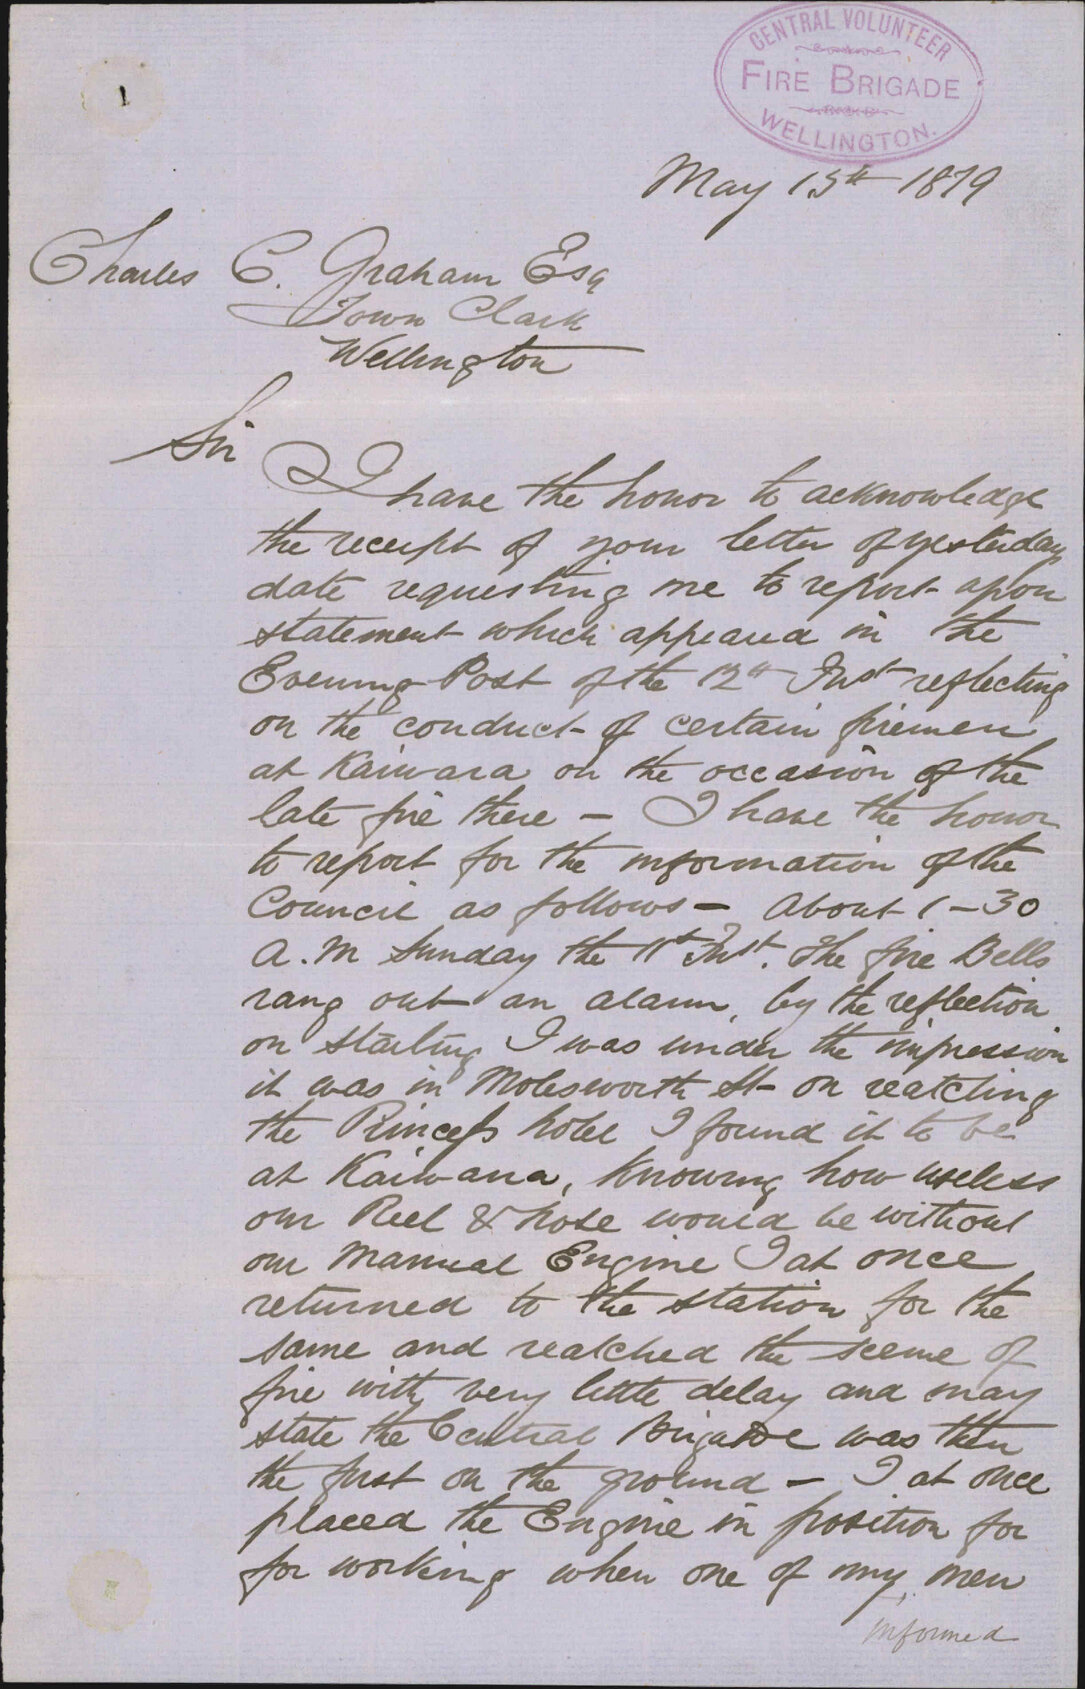 CENTRAL VOLUNTEER
FIRE BRIGADE
WELLINGTON.
May 15th 1879
Charles C. Graham Esq
Town Clark
Wellington
Sir
I have the honor to acknowledge
the receipt of your letter of yesterday
date requesting me to report upon
statement which appeared in the
Evening Post of the 12th Inst reflecting
on the conduct of certain firemen
at Kaiwara on the occasion of the
late fire there – I have the honor
to report for the information of the
Council as follows – About 1–30
A.M Sunday the 11th Inst. The fire Bells
rang out an alarm, by the reflection
on starting I was under the impression
it was in Molesworth St – on reatching
the Princess hotel I found it to be
at Kaiwara, Knowing how useless
our Reel & hose would be without
our Manual Engine I at once
returned to the station for the
same and reatched the sceene of
fire with very little delay and may
state the Central Brigade was then
the first on the ground – I at once
placed the Engine in position for
for working when one of my men
informed